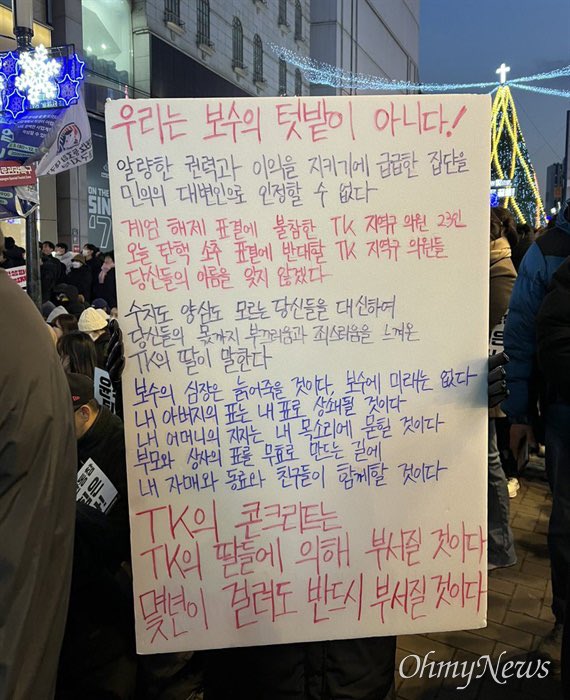 우리는 보수의 텃밭이 아니다!
알량한 권력과 이익을 지키기에 급급한 집단을
민의의 대변인으로 인정할 수 없다
계엄 해제 표결에 불참한 TK 지역구 의원 23인
오늘 탄핵 소추 표결에 반대할 TK 지역구 의원들
당신들의 이름을 잊지 않겠다
수치도 양심도 모르는 당신들을 대신하여
당신들의 몫까지 부끄러움과 죄스러움을 느껴온
TK의 딸이 말한다
보수의 심장은 늙어죽을 것이다, 보수에 미래는 없다
내 아버지의 표는 내 표로 상쇄될 것이다
내 어머니의 지지는 내 목소리에 묻힐 것이다
부모와 상사의 표를 무효로 만드는 길에
내 자매와 동료와 친구들이 함께할 것이다
TK의 콘크리트는
TK의 딸들에 의해 부서질 것이다
몇년이 걸려도 반드시 부서질 것이다
ON THE
SINCE
OhmyNews